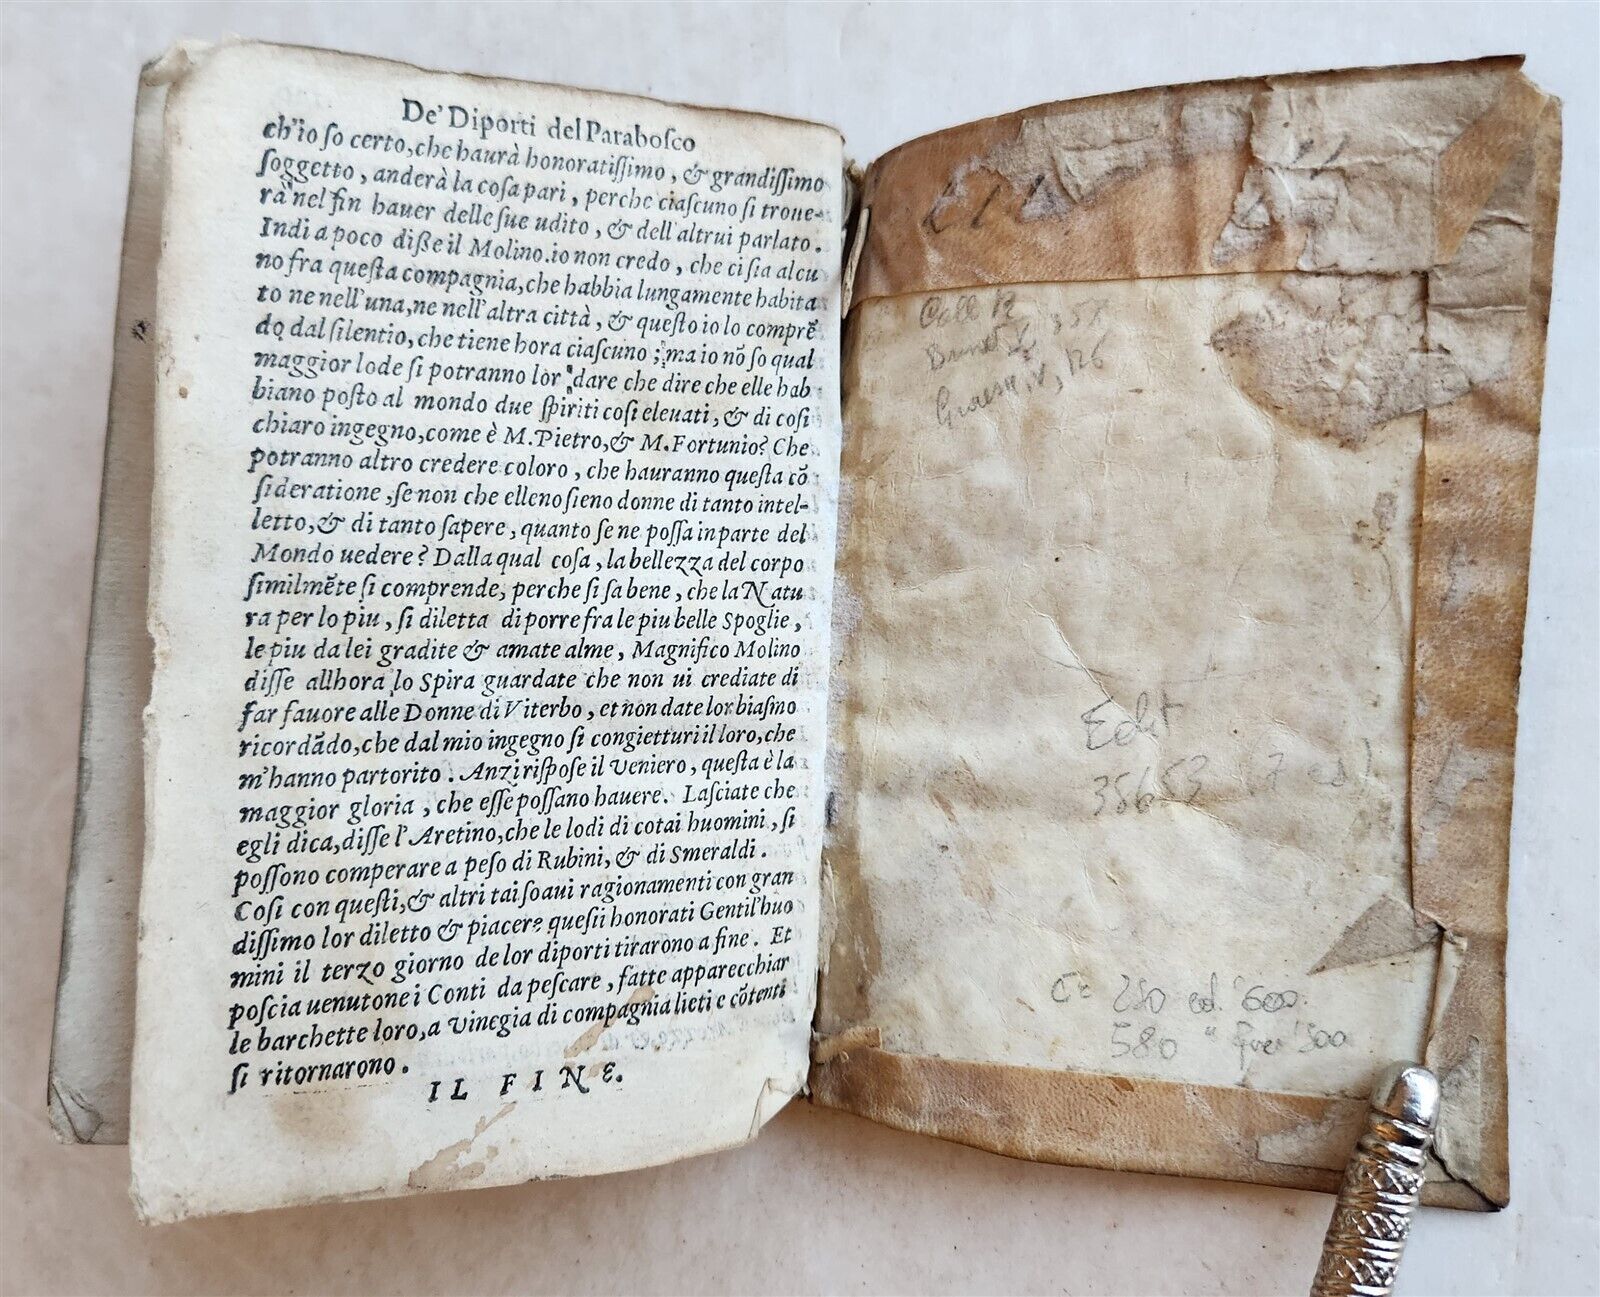 De' Diporti del Paraboſco
ch'io ſo certo, che haurà honoratiſſimo, & grandiſſimo
ſoggetto, anderà la coſa pari, perche ciaſcuno ſi troue-
rà nel fin hauer delle ſue udito, & dell'altrui parlato.
Indi a poco diſſe il Molino. io non credo, che ci ſia alcu
no fra queſta compagnia, che habbia lungamente habita
to ne nell'una, ne nell'altra città, & queſto io lo comprē
do dal ſilentio, che tiene hora ciaſcuno; ma io nō ſo qual
maggior lode ſi potranno lor dare che dire che elle hab
biano poſto al mondo due ſpiriti coſi eleuati, & di coſi
chiaro ingegno, come è M. Pietro, & M. Fortunio? Che
potranno altro credere coloro, che hauranno queſta cō
ſideratione, ſe non che elleno ſieno donne di tanto intel-
letto, & di tanto ſapere, quanto ſe ne poſſa in parte del
Mondo uedere? Dalla qual coſa, la bellezza del corpo
ſimilmēte ſi comprende, perche ſi ſa bene, che la Natu
ra per lo piu, ſi diletta di porre fra le piu belle Spoglie,
le piu da lei gradite & amate alme, Magnifico Molino
diſſe allhora lo Spira guardate che non ui crediate di
far fauore alle Donne di Viterbo, et non date lor biaſmo
ricordādo, che dal mio ingegno ſi congietturi il loro, che
m'hanno partorito. Anzi riſpoſe il Veniero, queſta è la
maggior gloria, che eſſe poſſano hauere. Laſciate che
egli dica, diſſe l'Aretino, che le lodi di cotai huomini, ſi
poſſono comperare a peſo di Rubini, & di Smeraldi.
Coſi con queſti, & altri tai ſoaui ragionamenti con gran
diſſimo lor diletto & piacere queſti honorati Gentil'huo
mini il terzo giorno de lor diporti tirarono a fine. Et
poſcia uenutone i Conti da peſcare, fatte apparecchiar
le barchette loro, a Vinegia di compagnia lieti e cōtenti
ſi ritornarono.
IL FINE.
Coll 12
Brunet 358
Graesse, V, 126
Edit
35653
280 ed. '600
580 " '500